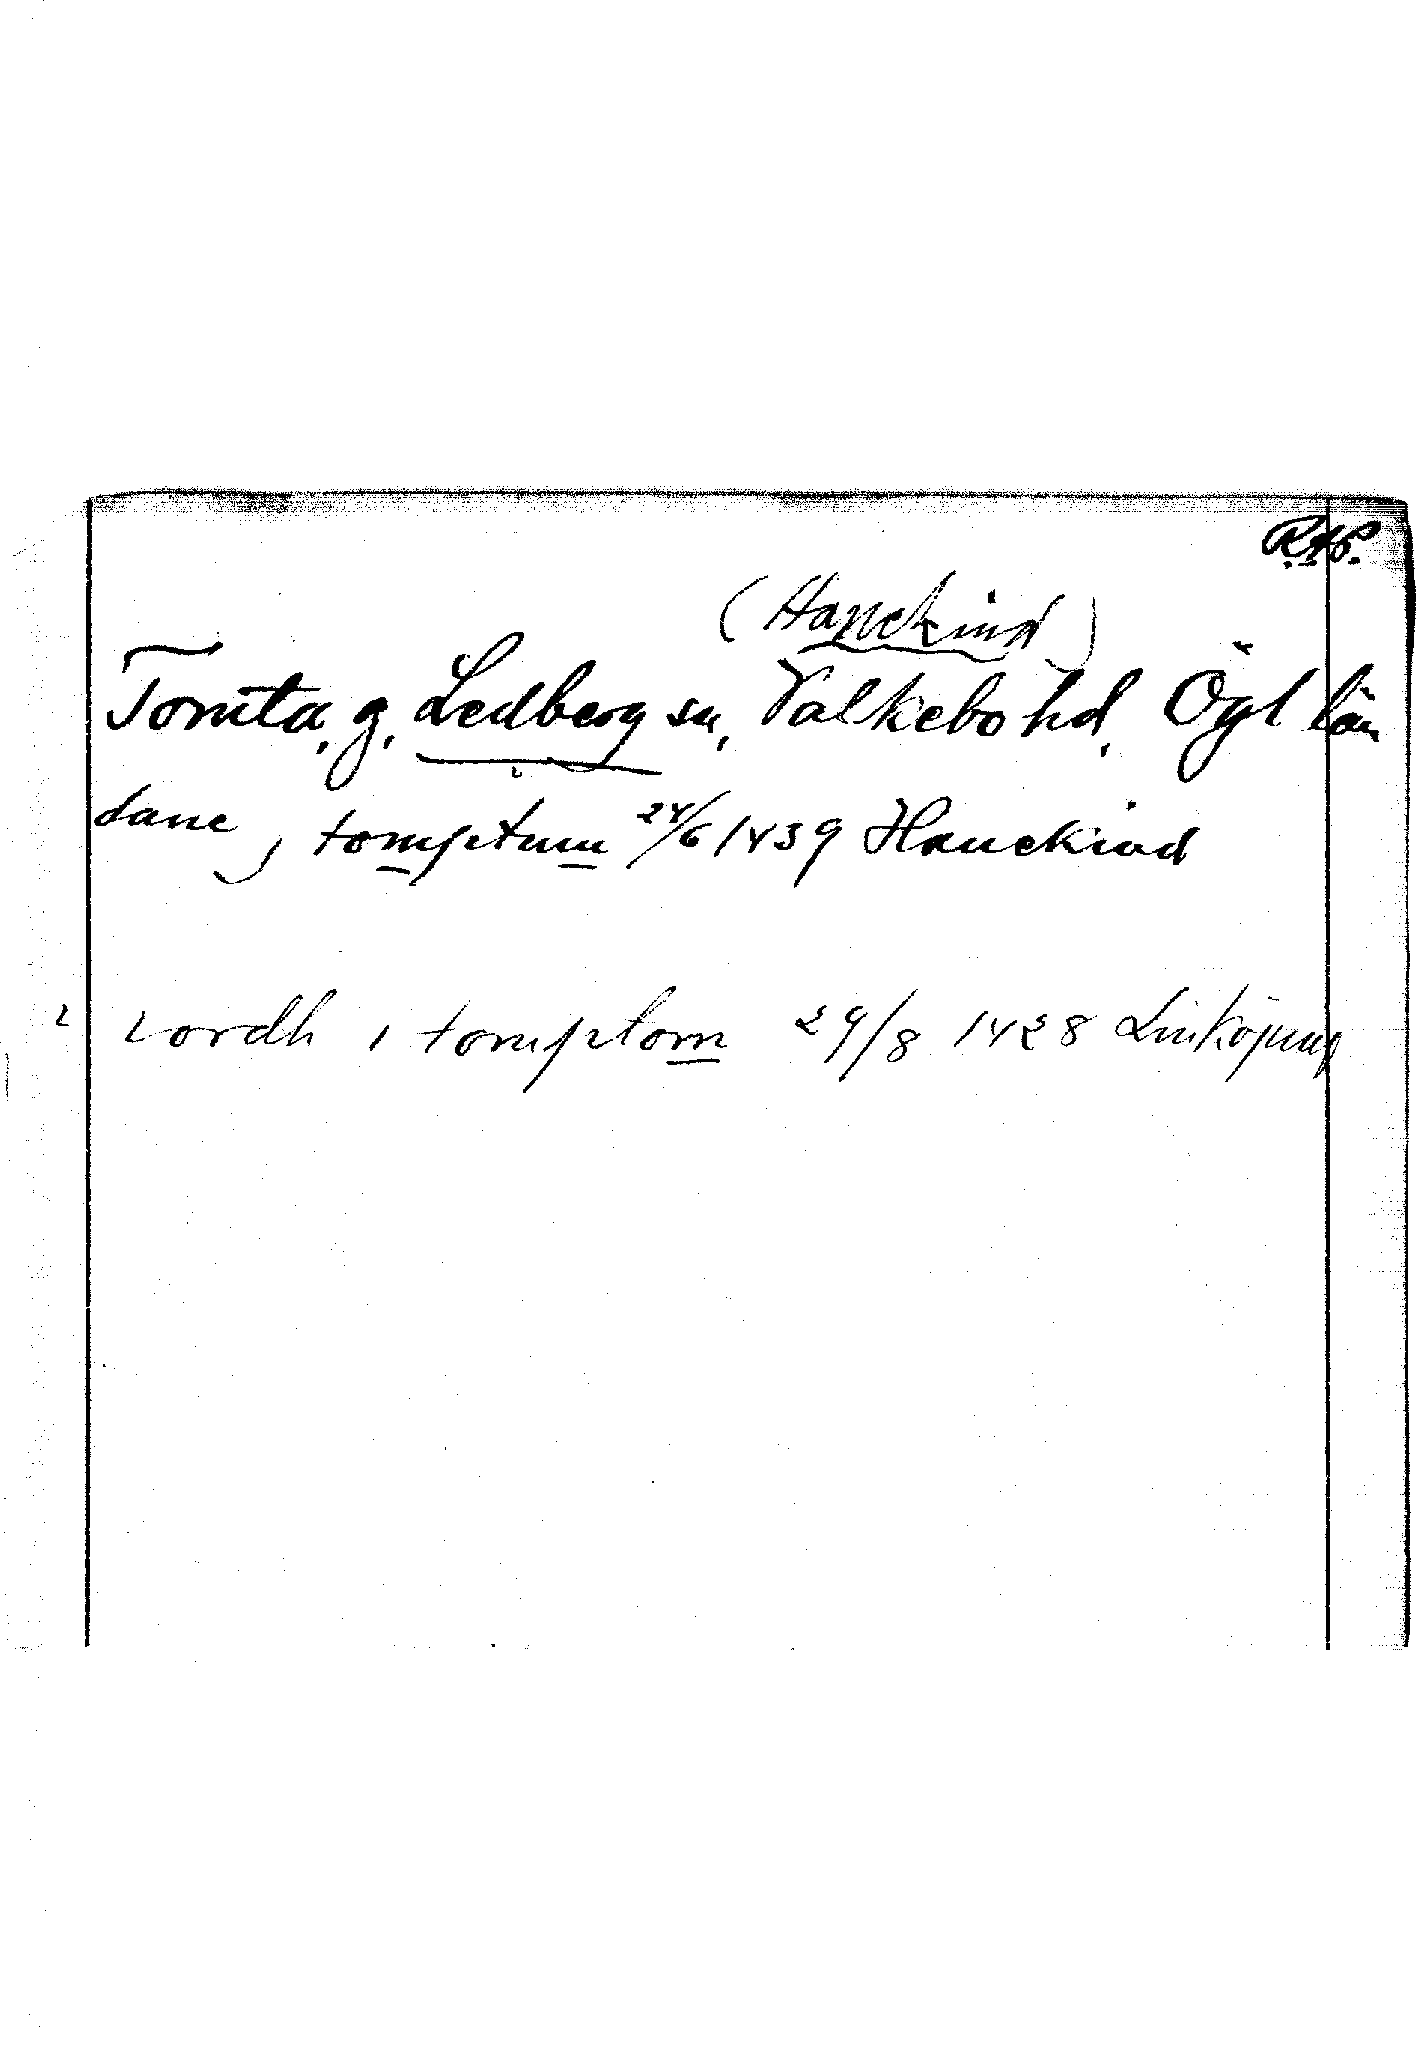 R.A.P.
(Hanekind)
Tomta, g. Ledberg sn, Valkebo hd. Ögl län
dane j tomptum 24/6 1439 Hanekind
i tomptom 29/8 1428 Linköpung